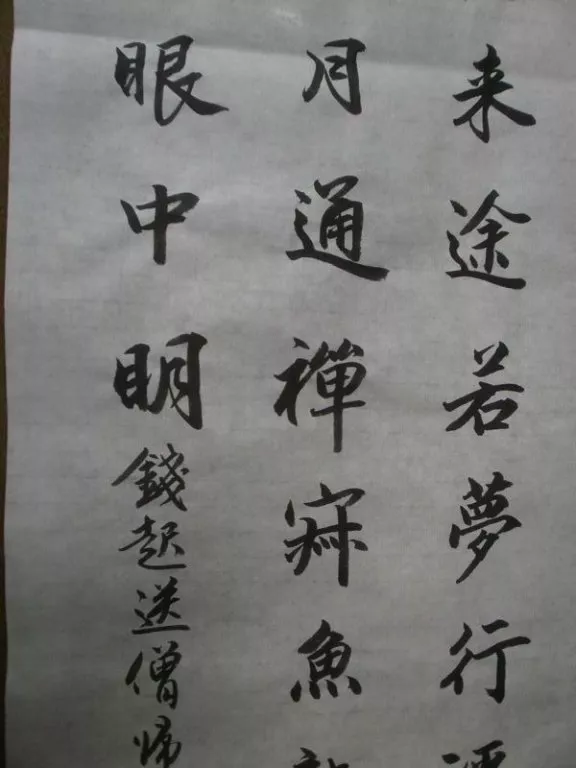 来途若夢行
月通禪寂魚
眼中明 錢起送僧帰